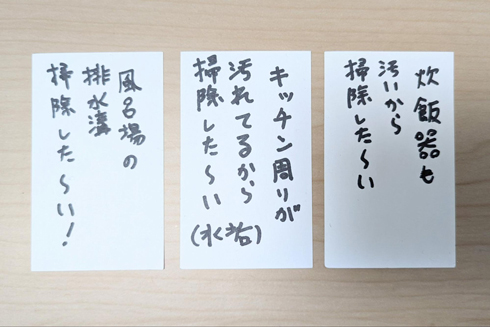 風呂場の
排水溝
掃除した〜い！
キッチン周りが
汚れてるから
掃除した〜い
炊飯器も
汚いから
掃除した〜い